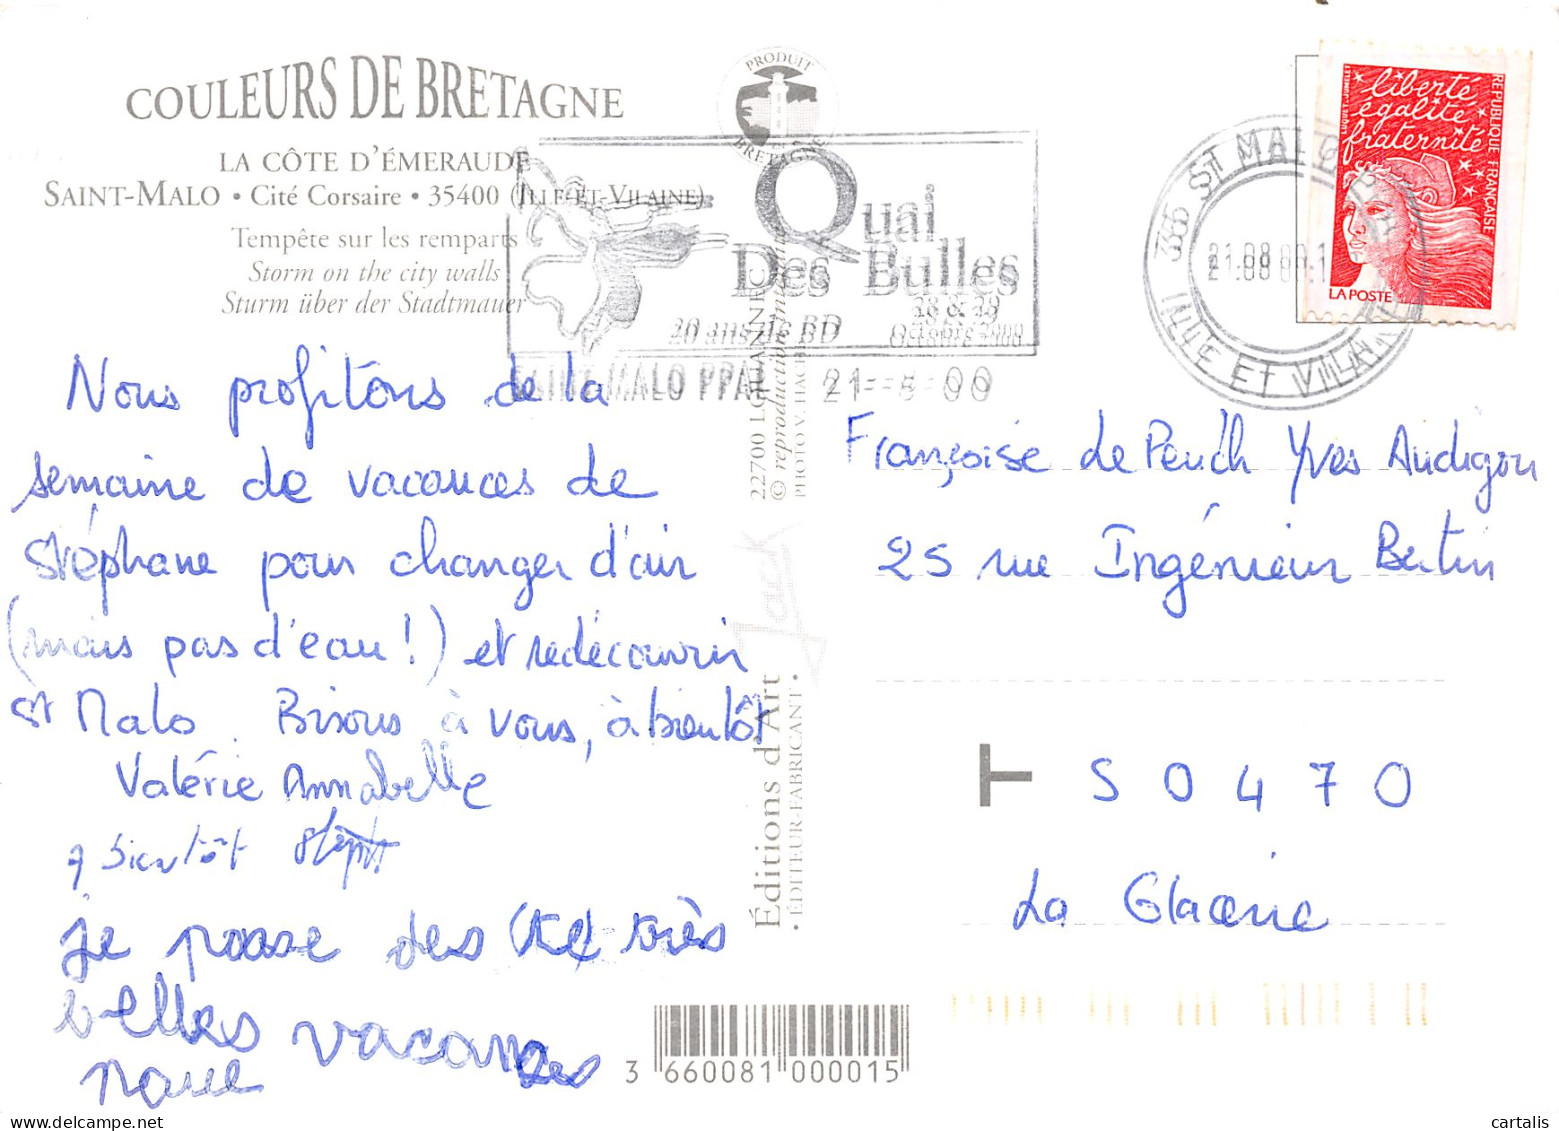 COULEURS DE BRETAGNE
LA CÔTE D'ÉMERAUDE
SAINT-MALO • Cité Corsaire • 35400 (ILLE-ET-VILAINE)
Tempête sur les remparts
Storm on the city walls
Sturm über der Stadtmauer
PRODUIT
EN
BRETAGNE
Quai
Des Bulles
28 & 29
20 ans de BD
Octobre 2000
SAINT-MALO PPAL 21-8-00
35 ST MALO
21.08.00.1
ILLE ET VILAINE
liberté
égalité
fraternité
RÉPUBLIQUE FRANÇAISE
LA POSTE
Nous profitons de la
semaine de vacances de
Stéphane pour changer d'air
(mais pas d'eau !) et redécouvrir
St Malo. Bisous à vous, à bientôt
Valérie Annabelle
à bientôt
je passe des très
belles vacances
22700
© reproduction
PHOTO V.
Jack
Éditions d'Art
• ÉDITEUR-FABRICANT •
Françoise Le Peuch Yves Audigou
25 rue Ingénieur Bertin
50470
La Glacerie
3 660081 000015
cartalis